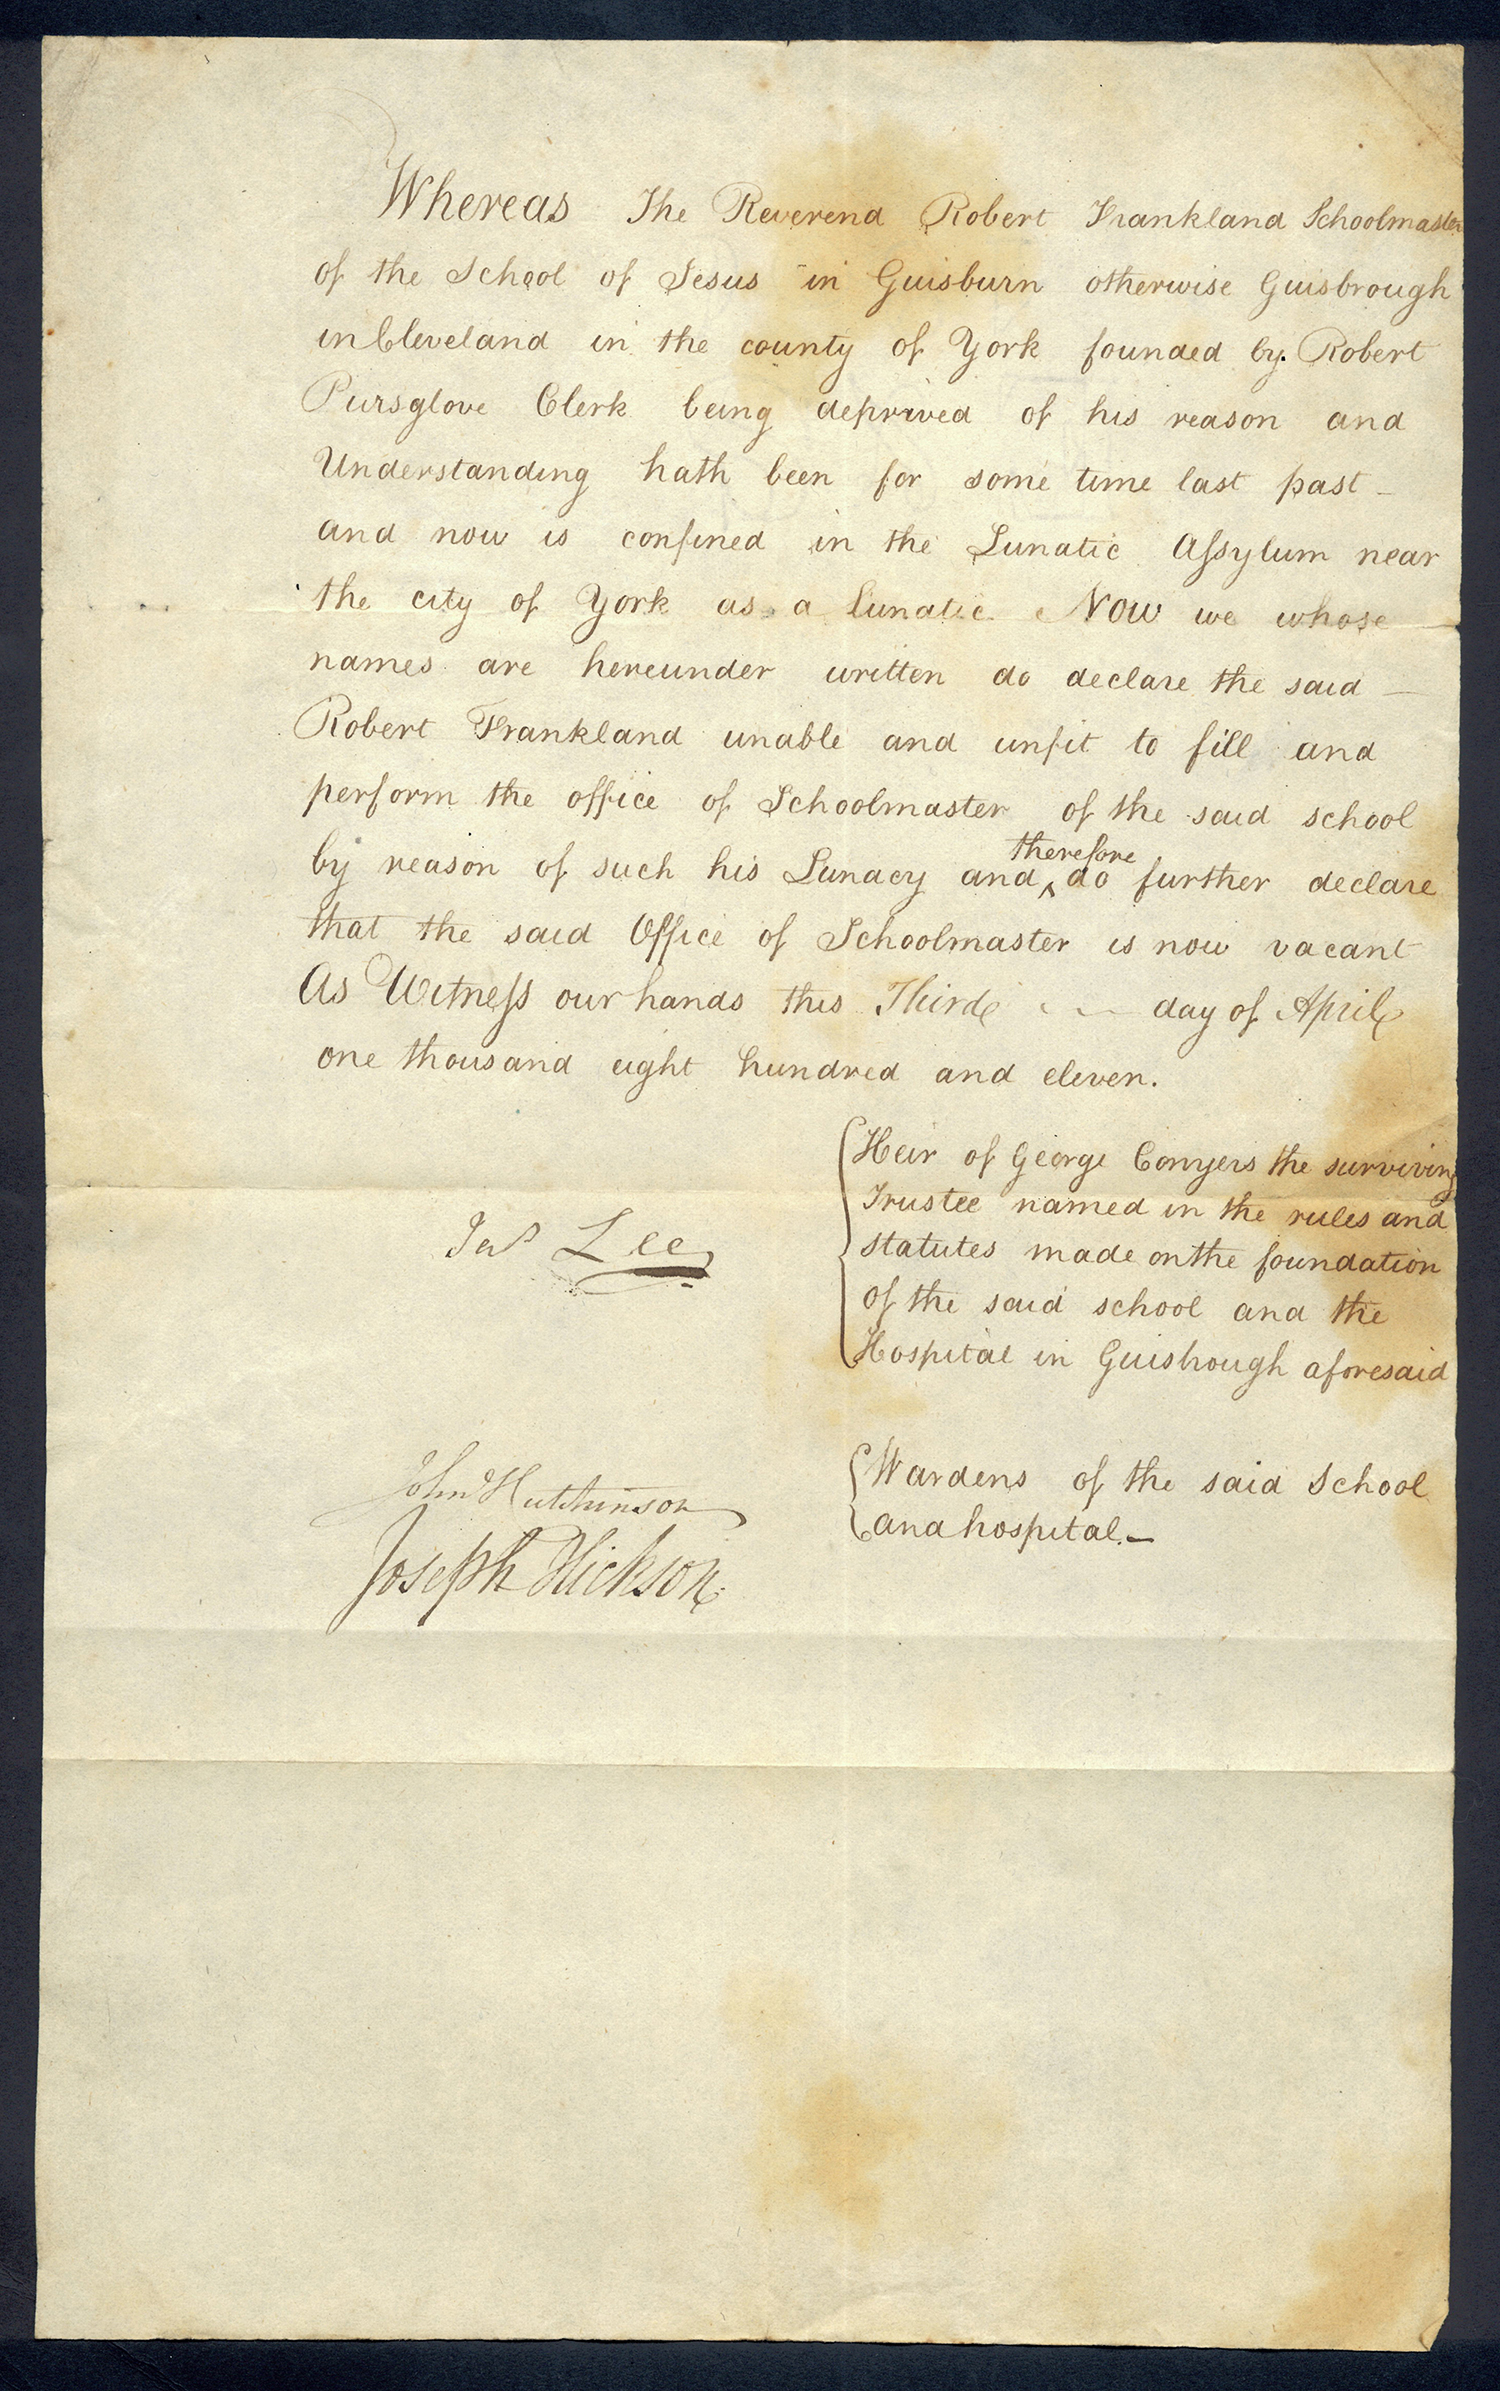 Whereas The Reverend Robert Frankland Schoolmaster
of the School of Jesus in Guisburn otherwise Guisbrough
in Cleveland in the county of York founded by Robert
Pursglove Clerk being deprived of his reason and
Understanding hath been for some time last past –
and now is confined in the Lunatic Assylum near
the city of York as a lunatic Now we whose
names are hereunder written do declare the said –
Robert Frankland unable and unfit to fill and
perform the office of Schoolmaster of the said school
therefore
by reason of such his Lunacy and ^ do further declare
that the said Office of Schoolmaster is now vacant
As Witness our hands this Third day of April
one thousand eight hundred and eleven.
Heir of George Conyers the surviving
Trustee named in the rules and
statutes made on the foundation
of the said school and the
Hospital in Guisbough aforesaid
Jas Lee
Wardens of the said School
and hospital. –
John Hutchinson
Joseph Hickson